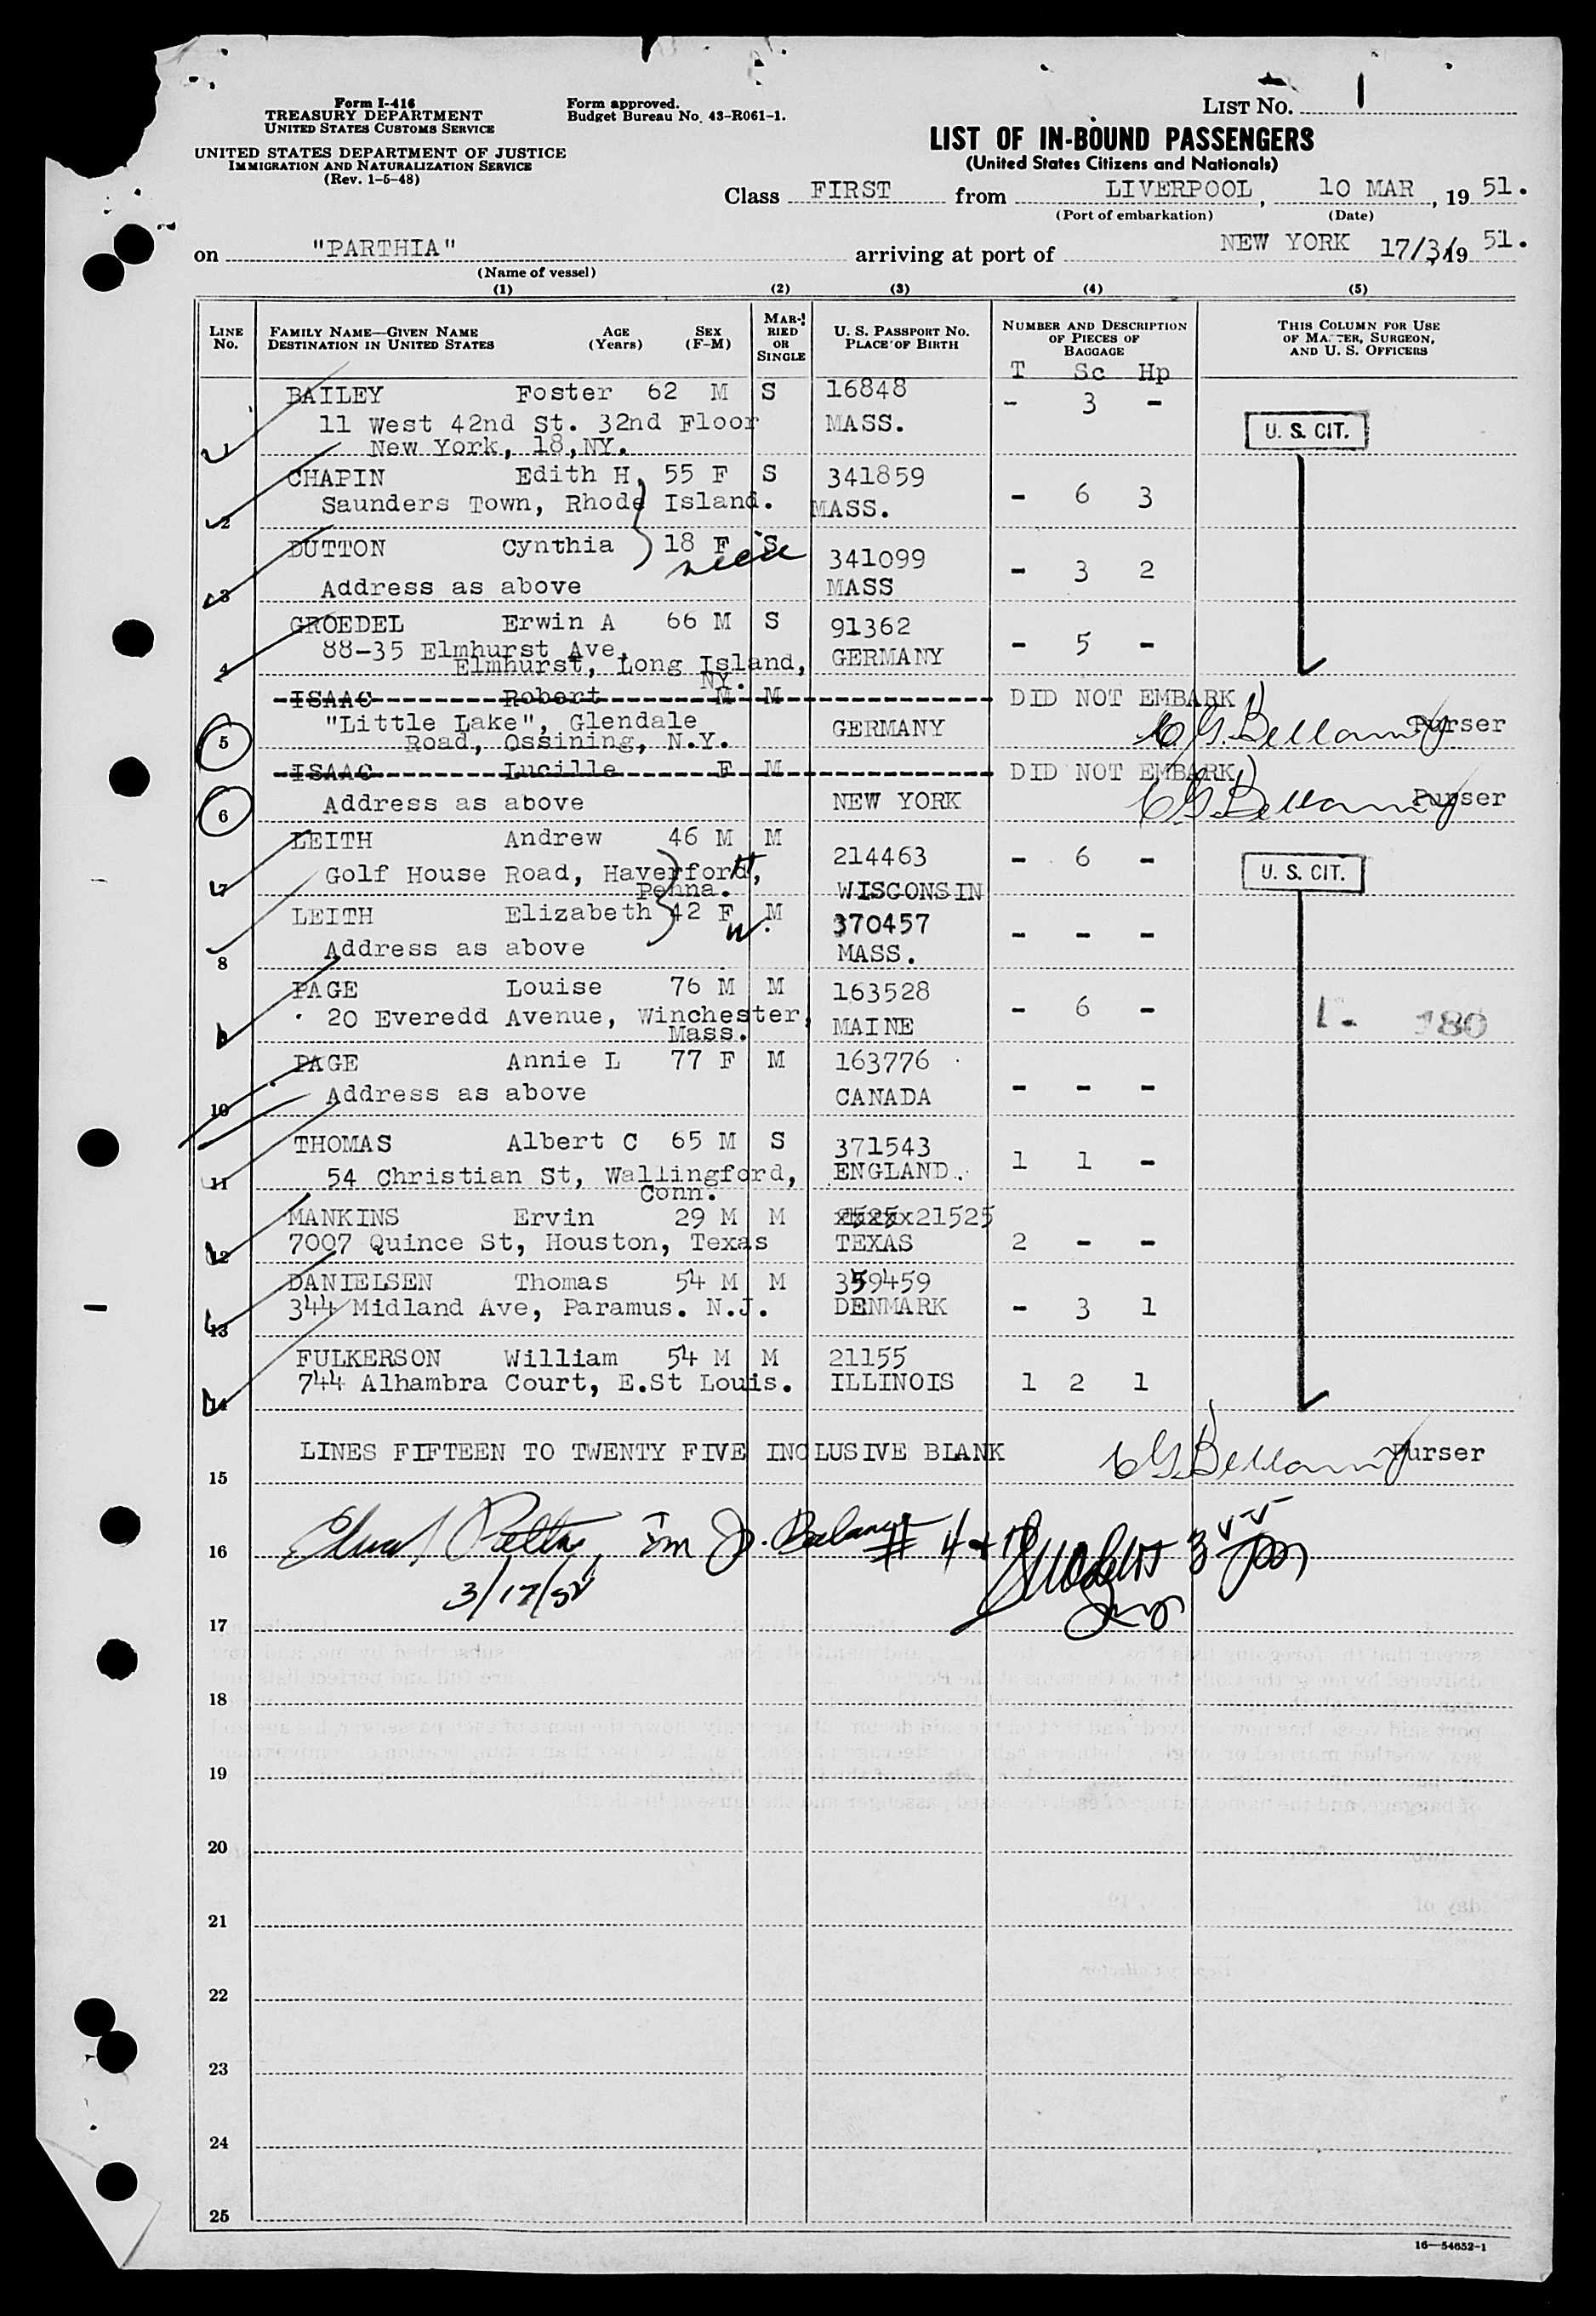 LIST NO. 1
Form I-416
TREASURY DEPARTMENT
UNITED STATES CUSTOMS SERVICE
Form approved.
Budget Bureau No. 43-R061-1.
UNITED STATES DEPARTMENT OF JUSTICE
IMMIGRATION AND NATURALIZATION SERVICE
(Rev. 1-5-48)
LIST OF IN-BOUND PASSENGERS
(United States Citizens and Nationals)
Class FIRST from LIVERPOOL, 10 MAR, 1951.
(Port of embarkation) (Date)
on "PARTHIA" arriving at port of NEW YORK 17/3/1951.
(Name of vessel)
(1) (2) (3) (4) (5)
LINE No. FAMILY NAME—GIVEN NAME DESTINATION IN UNITED STATES AGE (Years) SEX (F-M) MARRIED OR SINGLE U. S. PASSPORT NO. PLACE OF BIRTH NUMBER AND DESCRIPTION OF PIECES OF BAGGAGE THIS COLUMN FOR USE OF MASTER, SURGEON, AND U. S. OFFICERS
T Sc Hp
BAILEY Foster 62 M S 16848 - 3 -
11 West 42nd St. 32nd Floor MASS. U. S. CIT.
1 New York, 18,NY.
CHAPIN Edith H. 55 F S 341859
Saunders Town, Rhode Island. MASS. - 6 3
2
DUTTON Cynthia 18 F S 341099 - 3 2
3 Address as above MASS
GROEDEL Erwin A 66 M S 91362
88-35 Elmhurst Ave, - 5 -
4 Elmhurst, Long Island, NY. GERMANY
ISAAC Robert M M DID NOT EMBARK
"Little Lake", Glendale GERMANY C. G. Bellamy Purser
5 Road, Ossining, N.Y.
ISAAC Lucille F M DID NOT EMBARK
6 Address as above NEW YORK C G Bellamy Purser
LEITH Andrew 46 M M 214463 - 6 -
7 Golf House Road, Haverford, H U. S. CIT.
Penna. WISCONSIN
LEITH Elizabeth 42 F M 370457 - - -
W.
8 Address as above MASS.
PAGE Louise 76 M M 163528 - 6 -
9 20 Everedd Avenue, Winchester, MAINE 180
Mass.
PAGE Annie L 77 F M 163776 - - -
10 Address as above CANADA
THOMAS Albert C 65 M S 371543 1 1 -
11 54 Christian St, Wallingford, ENGLAND.
Conn.
MANKINS Ervin 29 M M 21525
12 7007 Quince St, Houston, Texas TEXAS 2 - -
DANIELSEN Thomas 54 M M 359459
13 344 Midland Ave, Paramus. N.J. DENMARK - 3 1
FULKERSON William 54 M M 21155
14 744 Alhambra Court, E.St Louis. ILLINOIS 1 2 1
LINES FIFTEEN TO TWENTY FIVE INCLUSIVE BLANK C G Bellamy Purser
15
16
17
18
19
20
21
22
23
24
25
16—54652-1